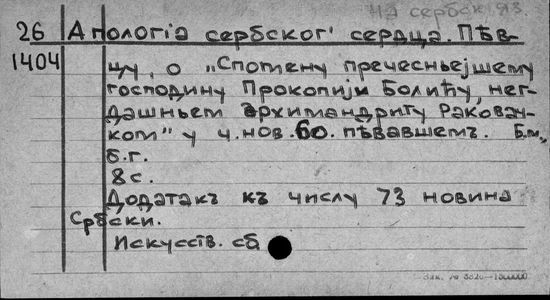 На сербск. яз.
26 Апологіа сербског' сердца. Пѣв-
1404 цу, о „Спомену пречесньејшему
господину Прокопију Болићу, нег-
дашньем архимандриту Раковач-
ком" у ч. нов. 60. пѣвавшемъ. Б.м.,
б.г.
8с.
Додатакъ къ числу 73 новина
Србски.
Искусств. сб.
Зак. № 3820—1000000